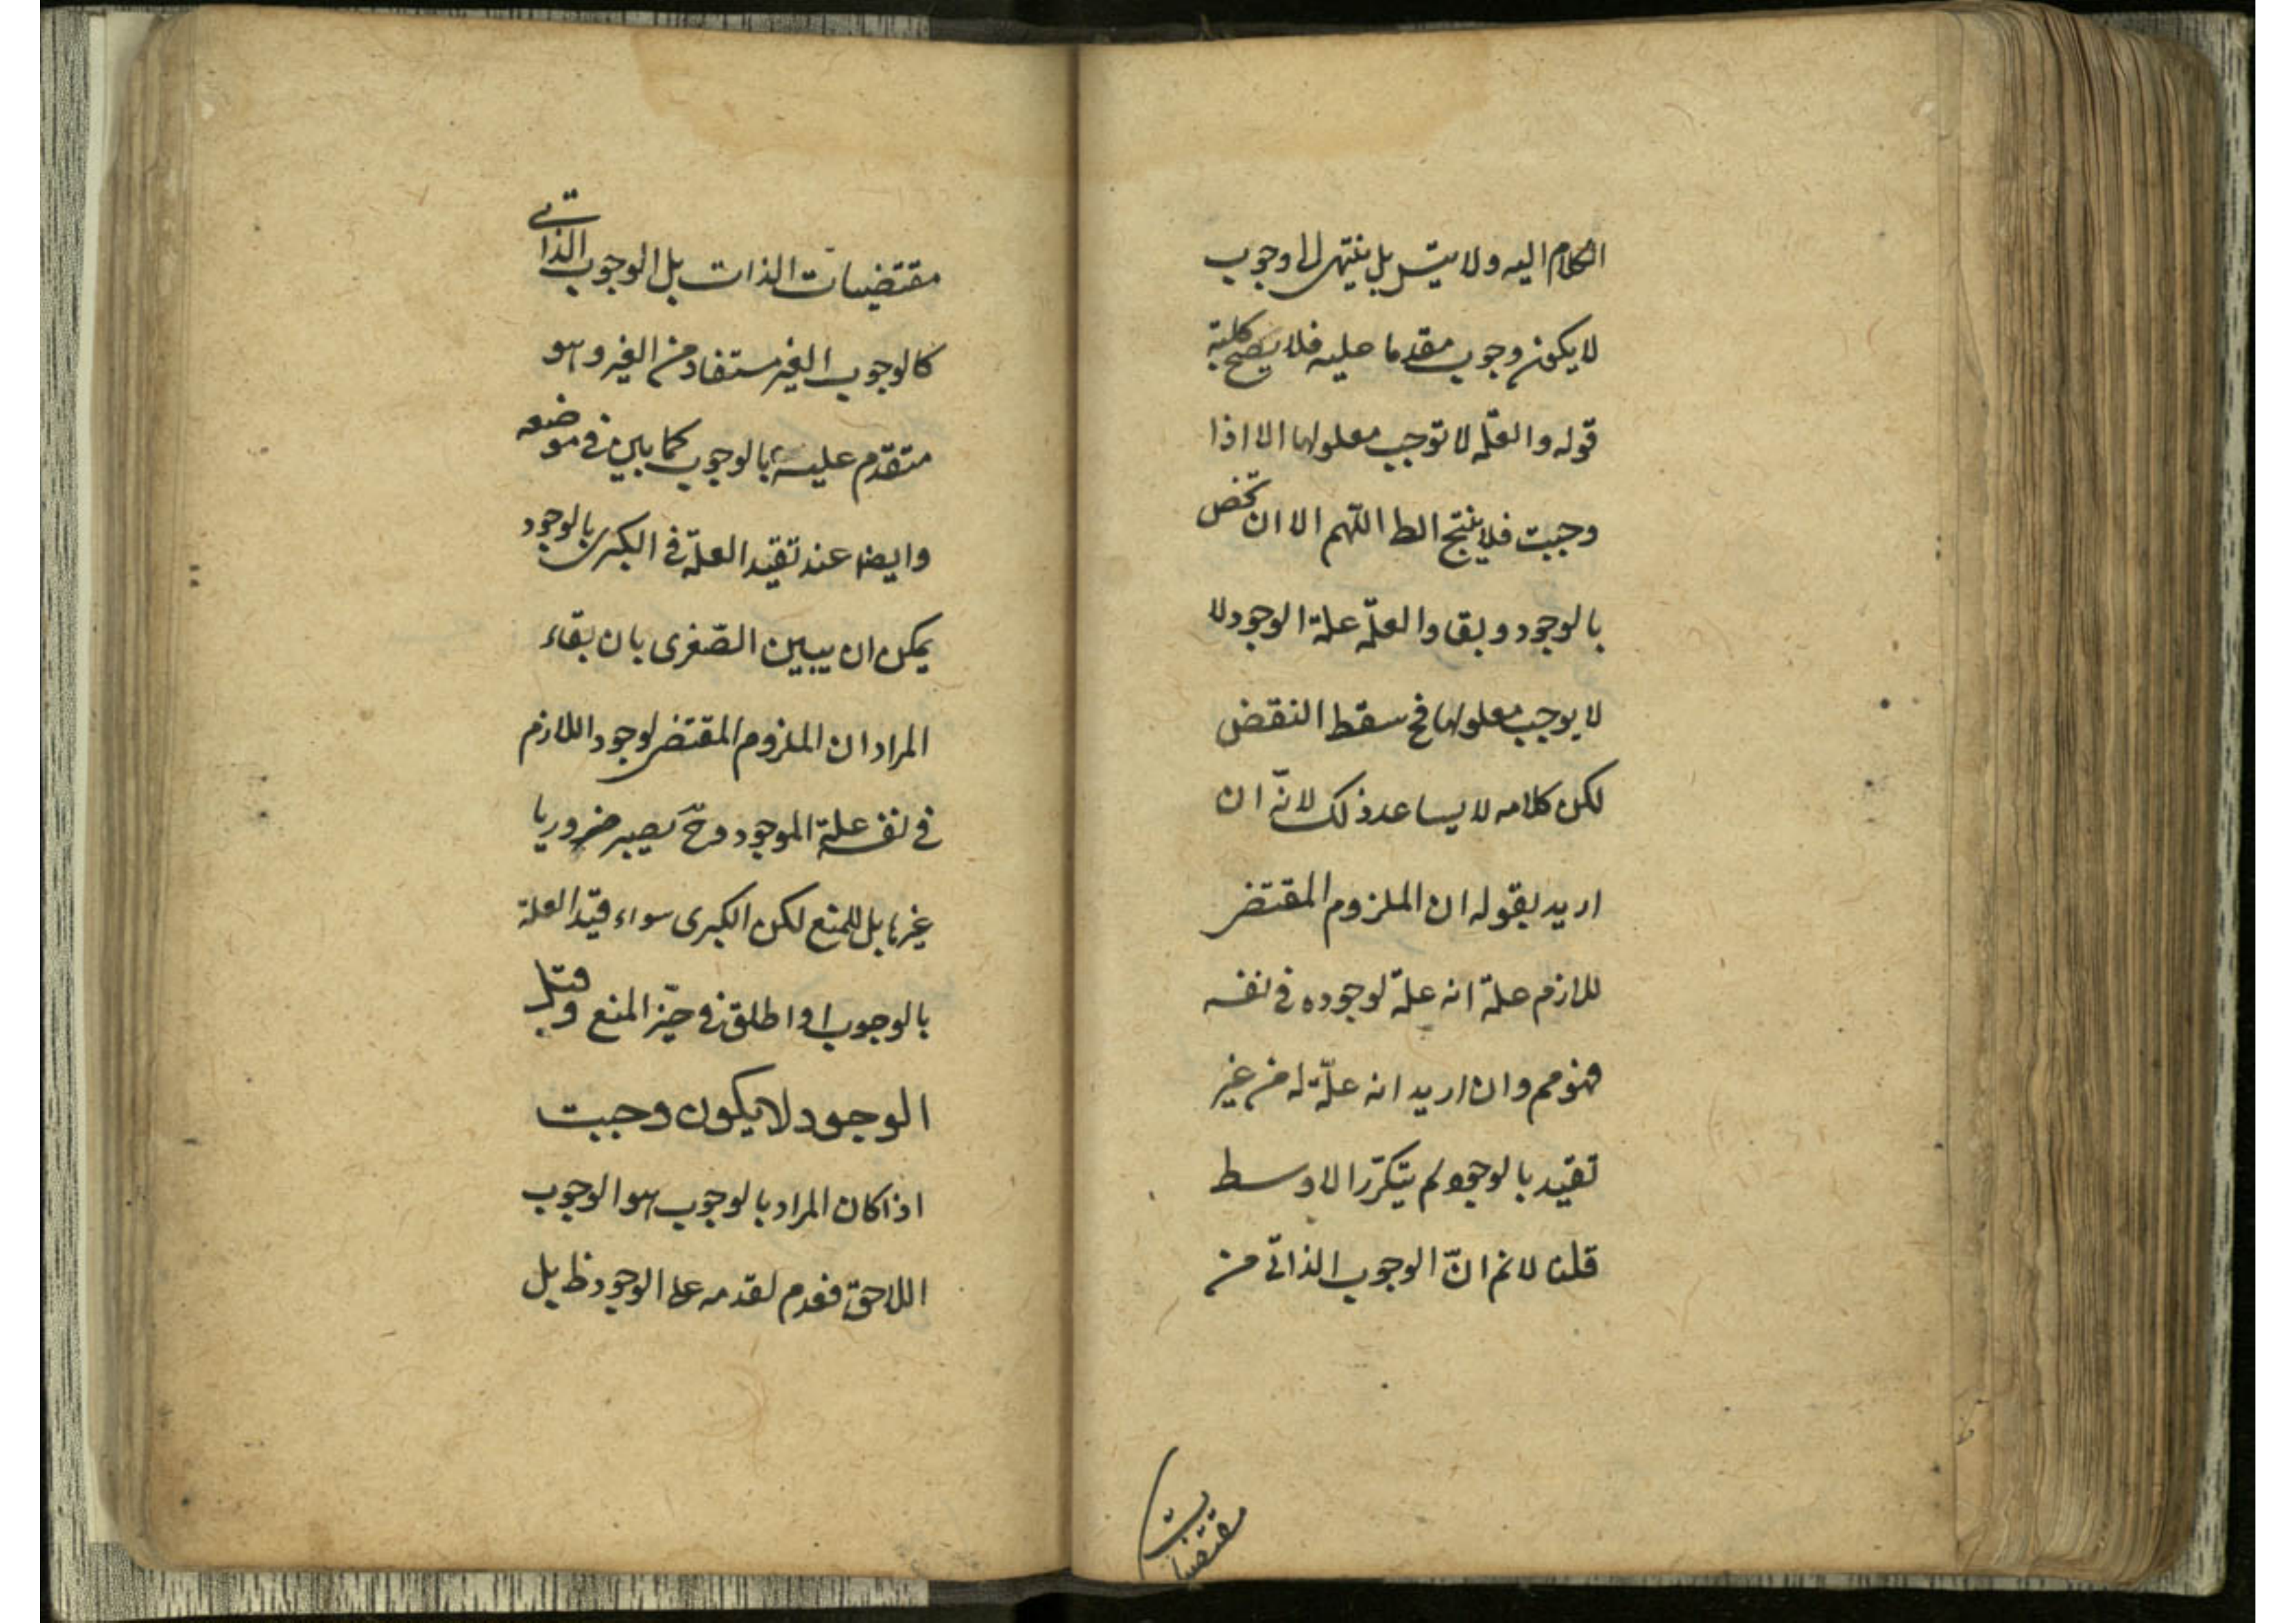 الكلام اليه ولا يتس بل ينتهى الى وجوب
لا يكون وجوب مقدما عليه فلا يصح كلية
قوله والعلّة لا توجب معلولها الا اذا
وجبت فلا ينتج المط اللّهم الا ان تخص
بالوجود وبقاء والعلّة علة الوجود لا
لا يوجب معلولها فح سقط النقض
لكن كلامه لا يساعد ذلك لانّه ان
اريد بقوله ان الملزوم المقتضى
للازم علّة انه علّة لوجوده فى نفسه
فهو مم وان اريد انه علّة له من غير
تقييد بالوجود لم يتكرّر الاوسط
قلنا لانم انّ الوجوب الذاتى من
مقتضيات
مقتضيات الذات بل الوجوب الذاتى
كالوجوب الغير مستفاد من الغير وهو
متقدّم عليه بالوجوب كما بين فى موضعه
وايضا عند تقيد العلّة فى الكبرى بالوجود
يمكن ان يبين الصّغرى بان بقاء
المراد ان الملزوم المقتضى لوجود اللازم
فى نفسه علة الموجود وحّ يصير ضروريا
غيرها بل للمنع لكن الكبرى سواء قيّد العلة
بالوجوب او اطلق فى حيّز المنع وقبل
الوجود لا يكون وجبت
اذا كان المراد بالوجوب هو الوجوب
اللاحق فعدم تقدمه على الوجود ظ بل